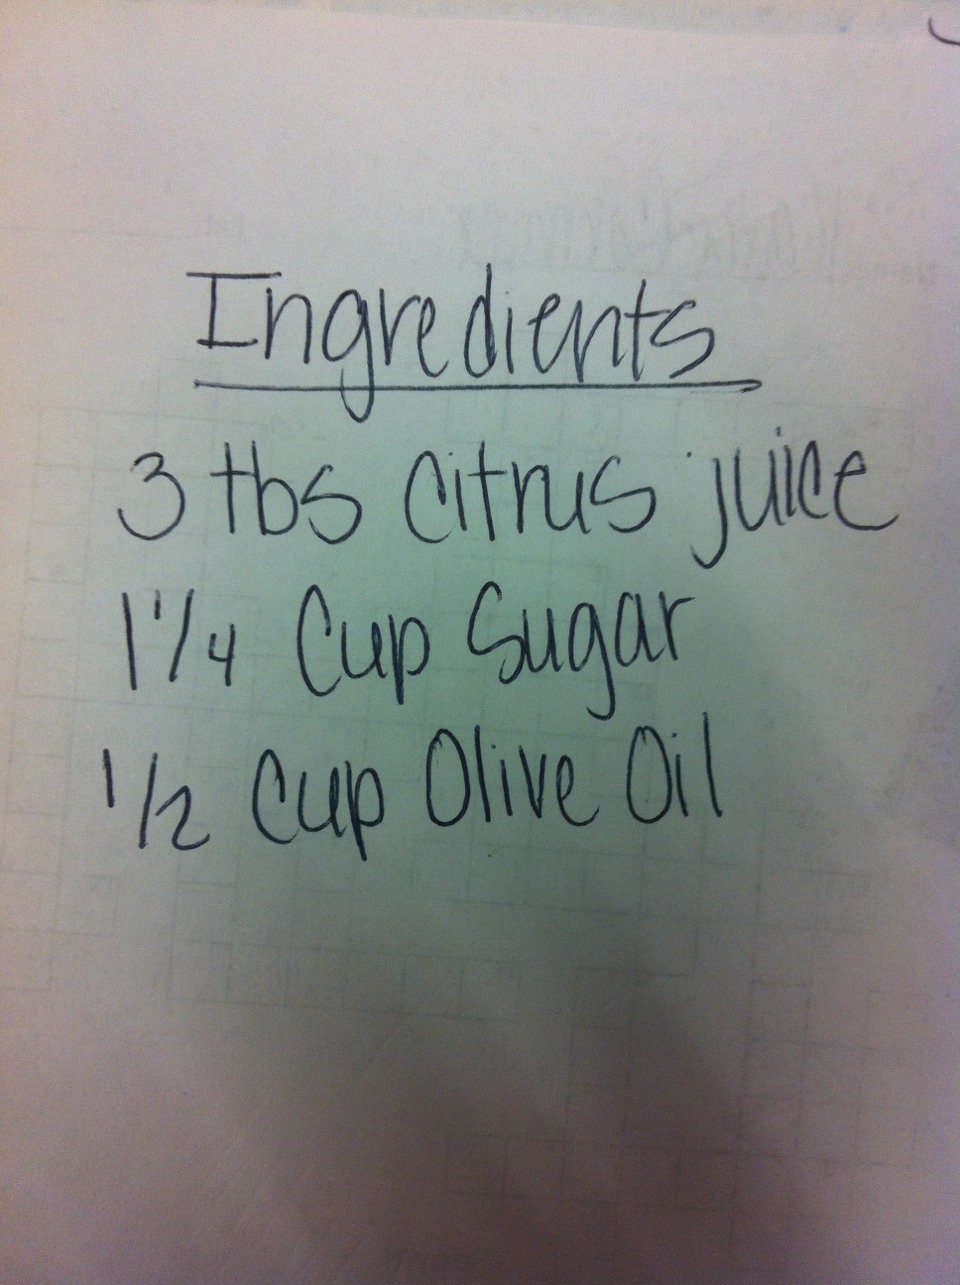 Ingredients
3 tbs citrus juice
1 1/4 Cup Sugar
1/2 Cup Olive Oil